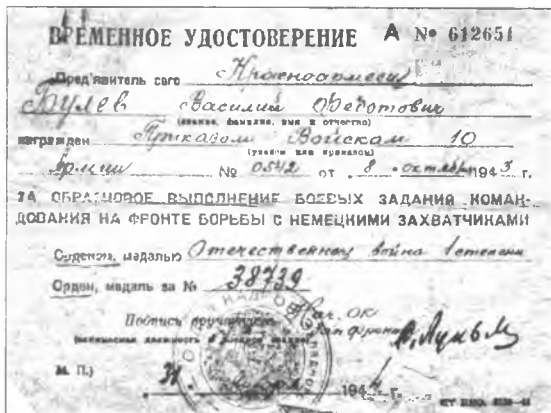 ВРЕМЕННОЕ УДОСТОВЕРЕНИЕ А № 612651
Пред'явитель сего Красноармеец
Булев Василий Федотович
(звание, фамилия, имя и отчество)
награжден Приказом Войскам 10
(указом или приказом)
Армии № 0542 от 8 октября 1943 г.
ЗА ОБРАЗЦОВОЕ ВЫПОЛНЕНИЕ БОЕВЫХ ЗАДАНИЙ КОМАН-
ДОВАНИЯ НА ФРОНТЕ БОРЬБЫ С НЕМЕЦКИМИ ЗАХВАТЧИКАМИ
Орденом, медалью Отечественной война 1 степени
Орден, медаль за № 38739
Подпись
М. П.) 31 194